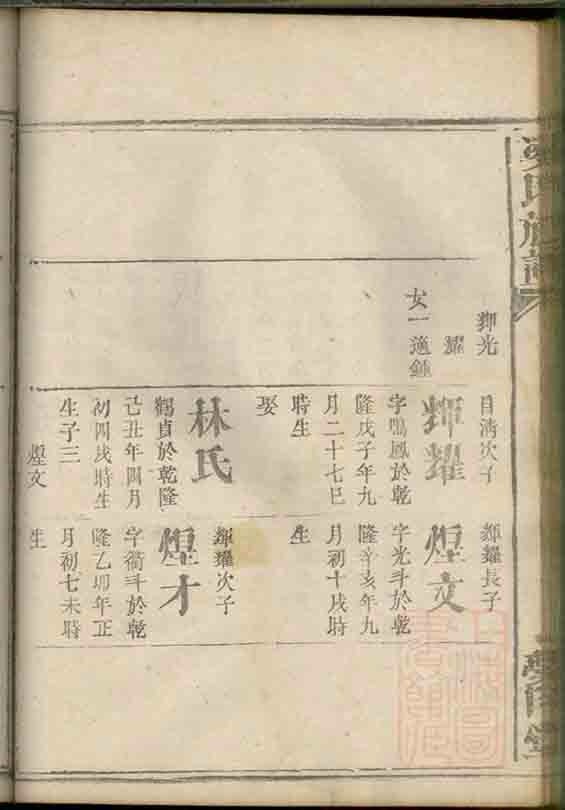 輝光
耀
女一適鍾
目淸次子
輝耀
字鳴鳳於乾
隆戊子年九
月二十七巳
時生
娶
林氏
鶴貞於乾隆
己丑年四月
初四戌時生
生子三
煌文
輝耀長子
煌文
字光斗於乾
隆辛亥年九
月初十戌時
生
輝耀次子
煌才
字衢斗於乾
隆乙卯年正
月初七未時
生